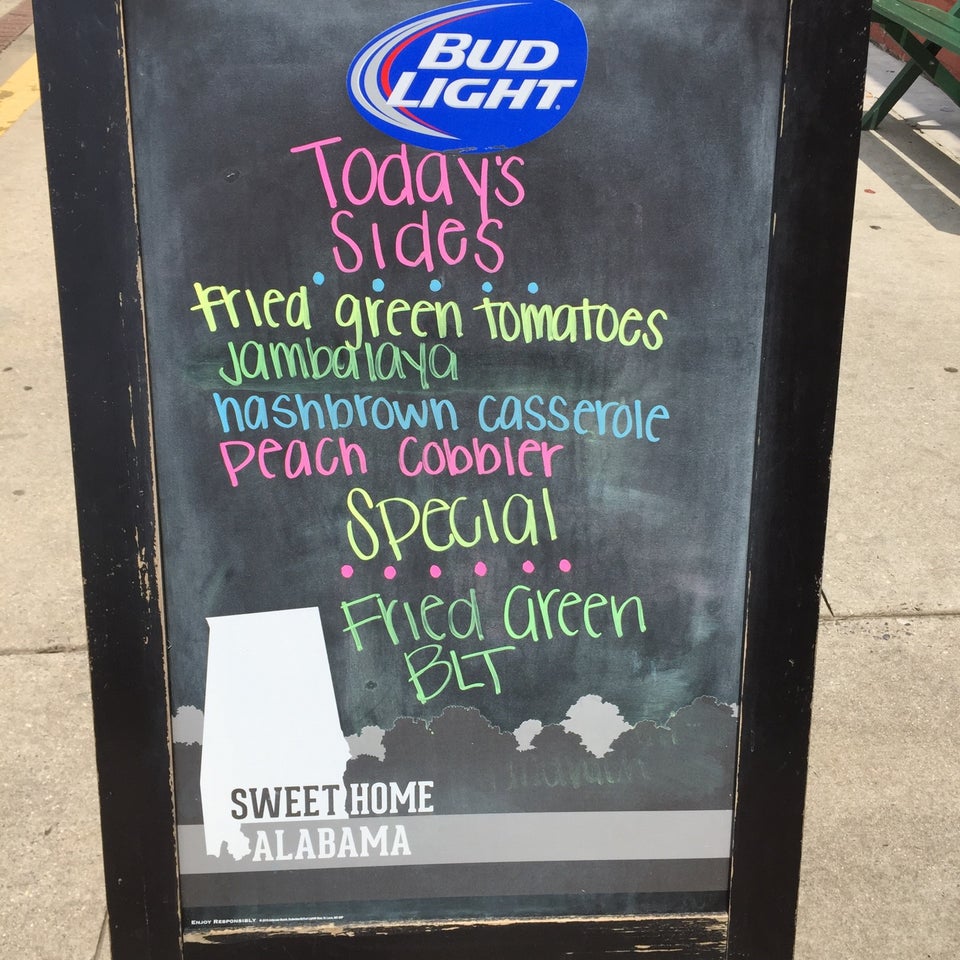 BUD
LIGHT.
Today's
Sides
Fried green tomatoes
Jambalaya
hashbrown casserole
Peach Cobbler
Special
Fried Green
BLT
SWEET HOME
ALABAMA
ENJOY RESPONSIBLY